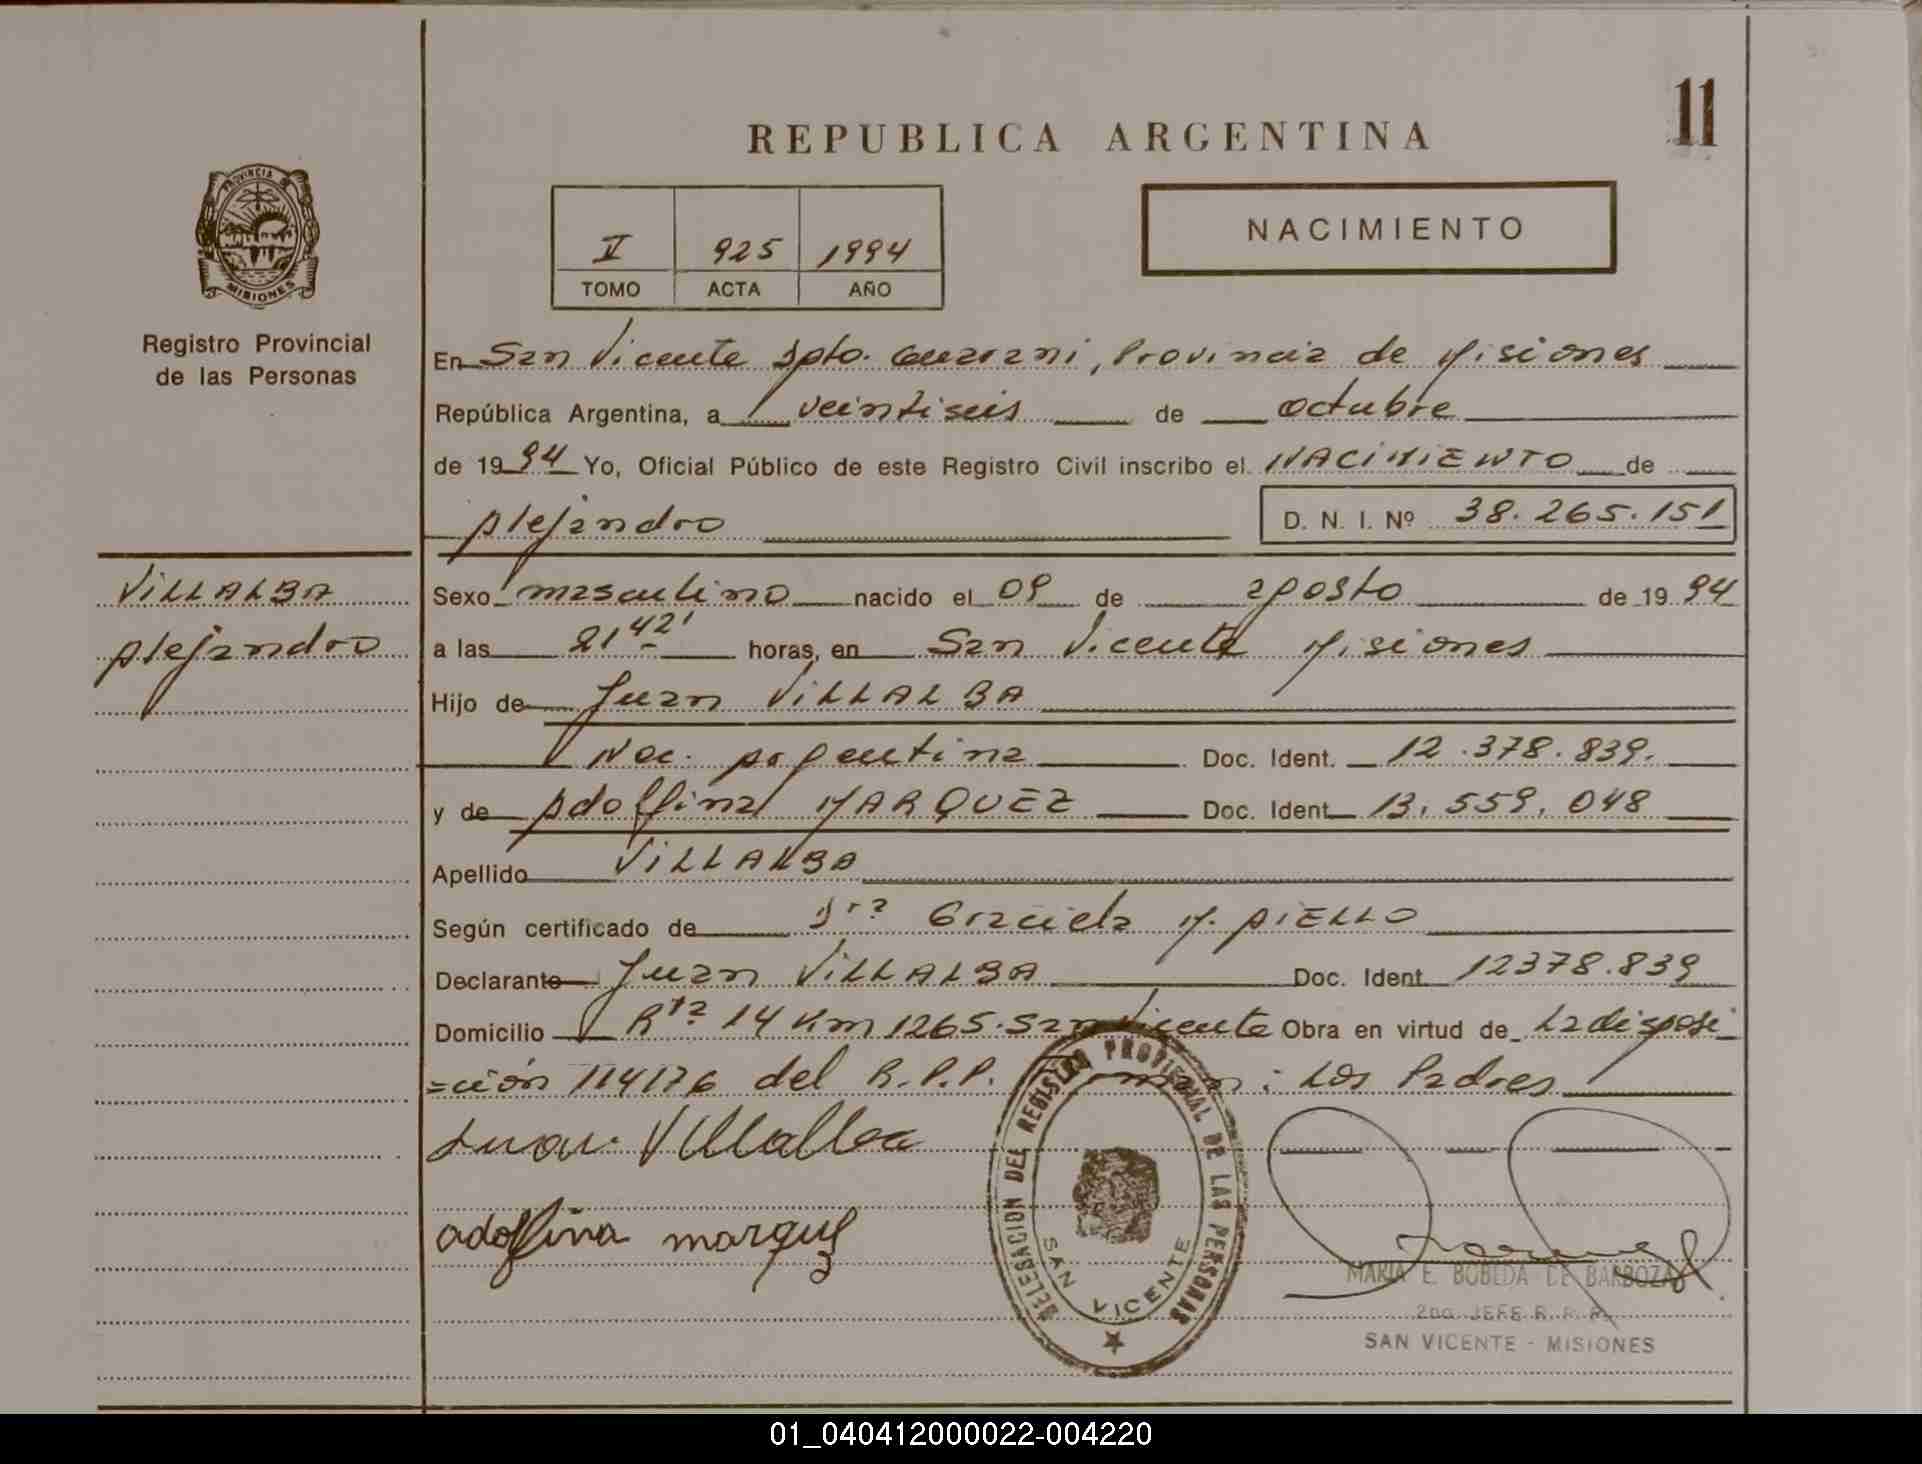 11
REPUBLICA ARGENTINA
PROVINCIA DE
MISIONES
Registro Provincial
de las Personas
V 925 1994
TOMO ACTA AÑO
NACIMIENTO
En San Vicente Dpto. Guarani, Provincia de Misiones
República Argentina, a veintiseis de octubre
de 1994 Yo, Oficial Público de este Registro Civil inscribo el NACIMIENTO de
Alejandro D. N. I. Nº 38.265.151
VILLALBA
Alejandro
Sexo masculino nacido el 09 de agosto de 1994
a las 21 42' horas, en San Vicente Misiones
Hijo de Juan VILLALBA
Nac. Argentina Doc. Ident. 12.378.839.
y de Adolfina MARQUEZ Doc. Ident. 13.559.048
Apellido VILLALBA
Según certificado de Dra Graciela M. AIELLO
Declarante Juan VILLALBA Doc. Ident. 12378.839
Domicilio Rta 14 Km 1265. San Vicente Obra en virtud de La disposi
=ción 114176 del R.P.P. : Los Padres
Juan Villalba
adolfina marquez
DELEGACION DEL REGISTRO PROVINCIAL DE LAS PERSONAS
SAN VICENTE
MARIA E. BOBEDA DE BARBOZA
2do. JEFE R. P. P.
SAN VICENTE - MISIONES
01_040412000022-004220